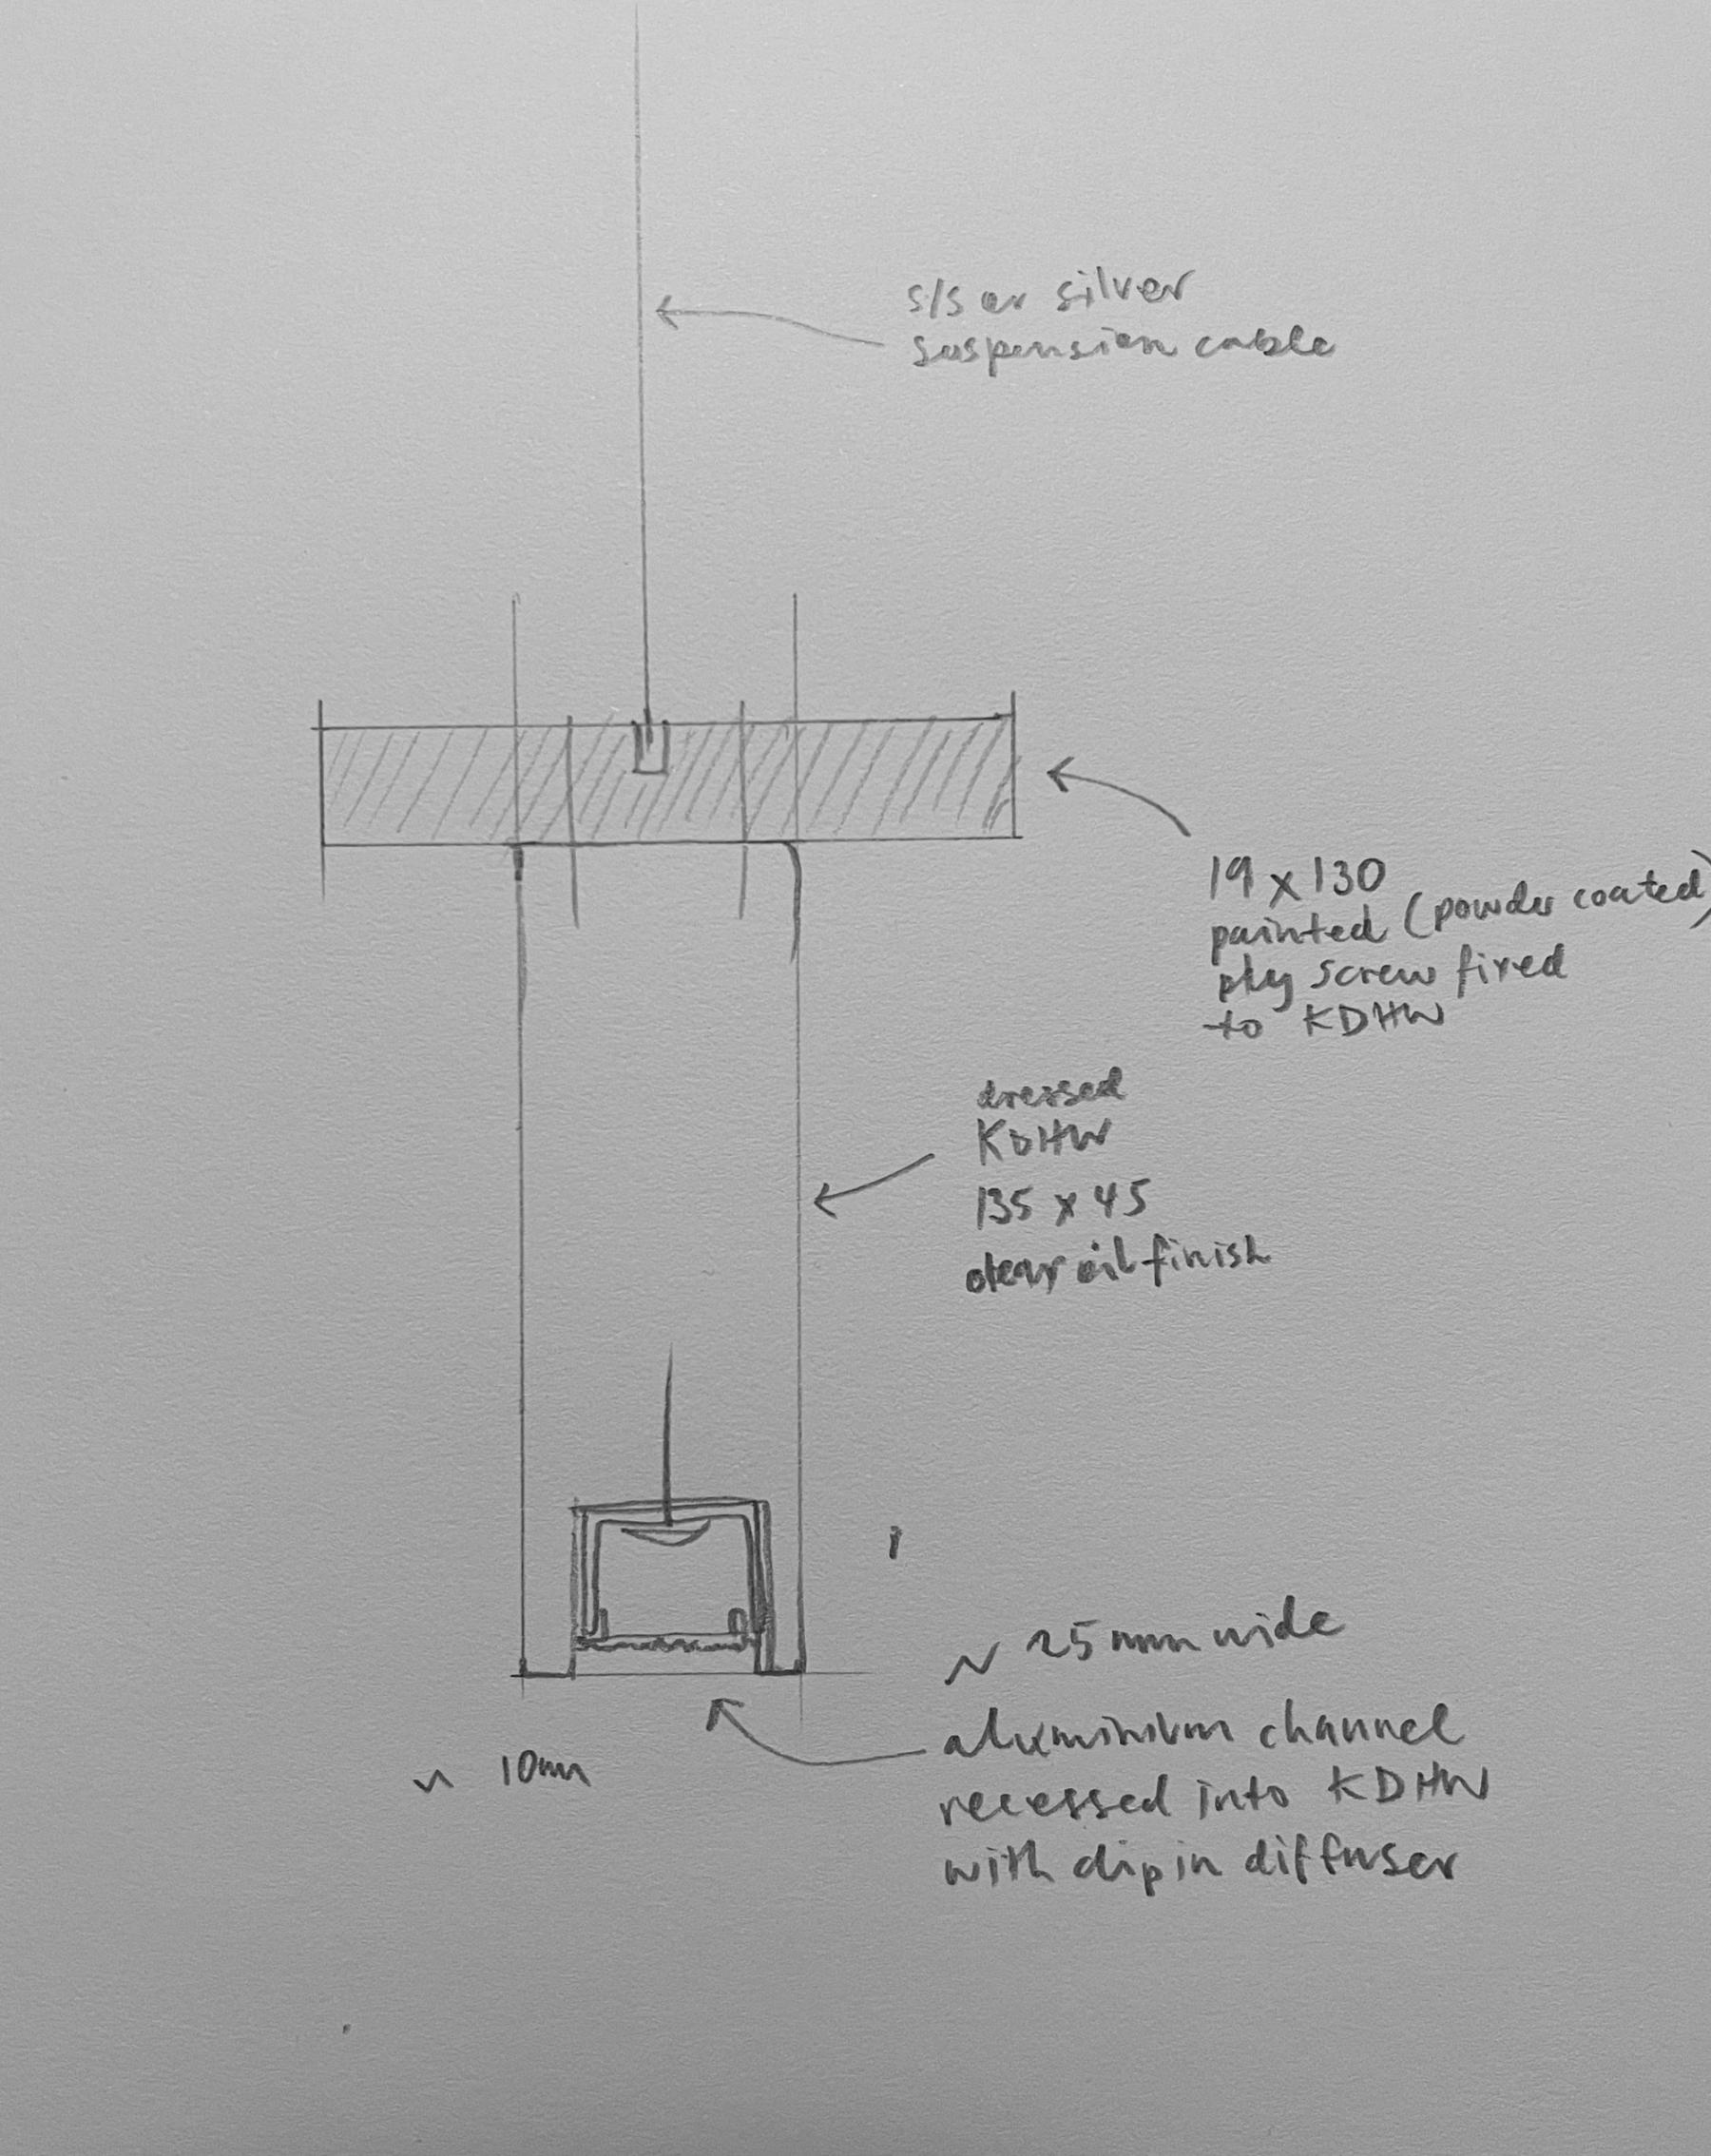 s/s or silver
suspension cable
19 x 130
painted (powder coated)
ply screw fixed
to KDHW
dressed
KDHW
135 x 45
clear oil finish
~ 25mm wide
aluminium channel
recessed into KDHW
with clip in diffuser
~ 10mm